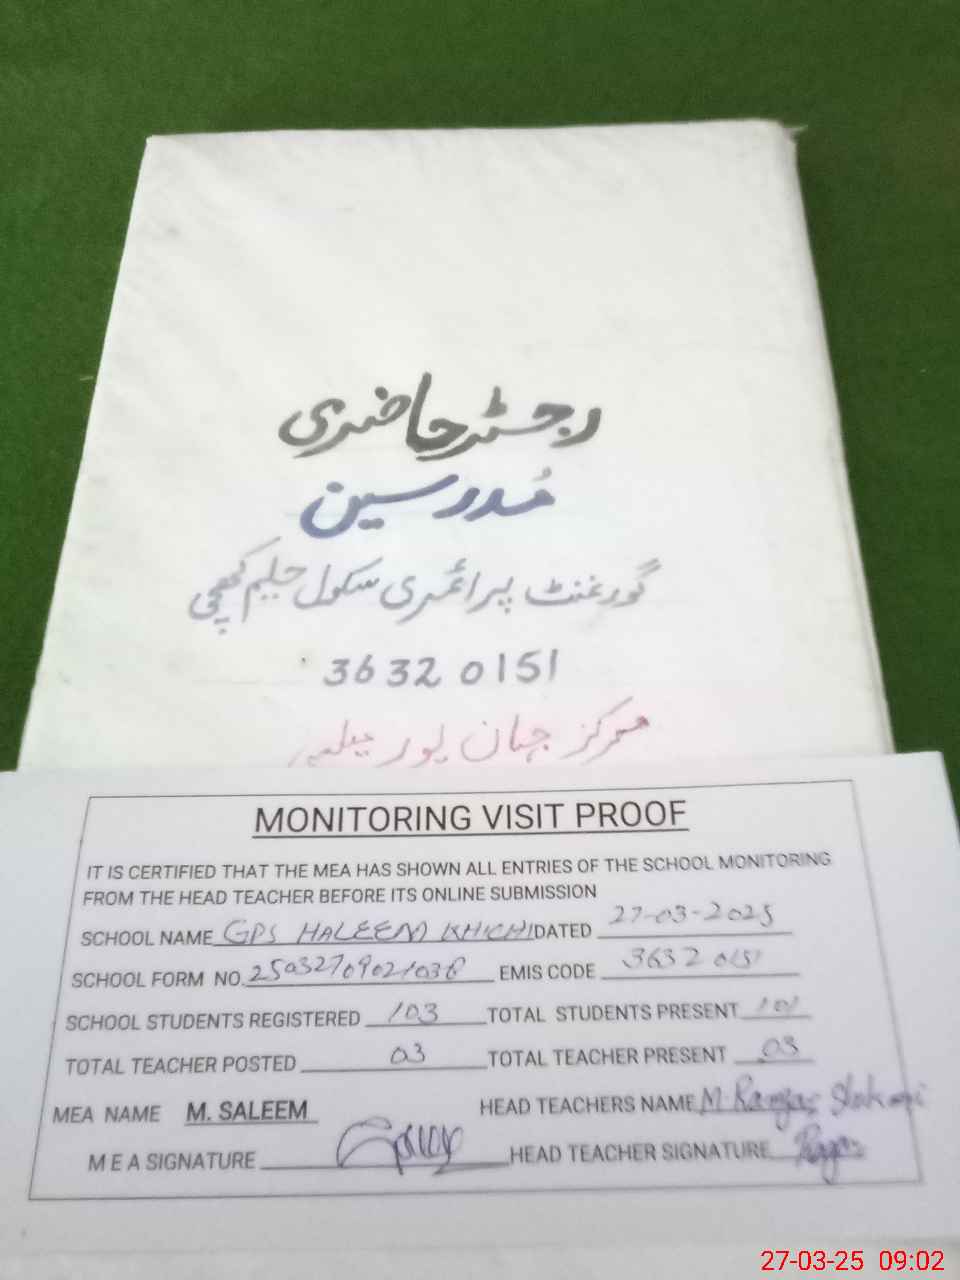 رجسٹر حاضری
مُدرسین
گورنمنٹ پرائمری سکول حلیم کھچی
36320151
مرکز جہان پور میلسی
MONITORING VISIT PROOF
IT IS CERTIFIED THAT THE MEA HAS SHOWN ALL ENTRIES OF THE SCHOOL MONITORING
FROM THE HEAD TEACHER BEFORE ITS ONLINE SUBMISSION
SCHOOL NAME GPS HALEEM KHICHI DATED 27-03-2025
SCHOOL FORM NO. EMIS CODE 36320151
SCHOOL STUDENTS REGISTERED 103 TOTAL STUDENTS PRESENT 101
TOTAL TEACHER POSTED 03 TOTAL TEACHER PRESENT 03
MEA NAME M. SALEEM HEAD TEACHERS NAME M
M E A SIGNATURE HEAD TEACHER SIGNATURE
27-03-25 09:02